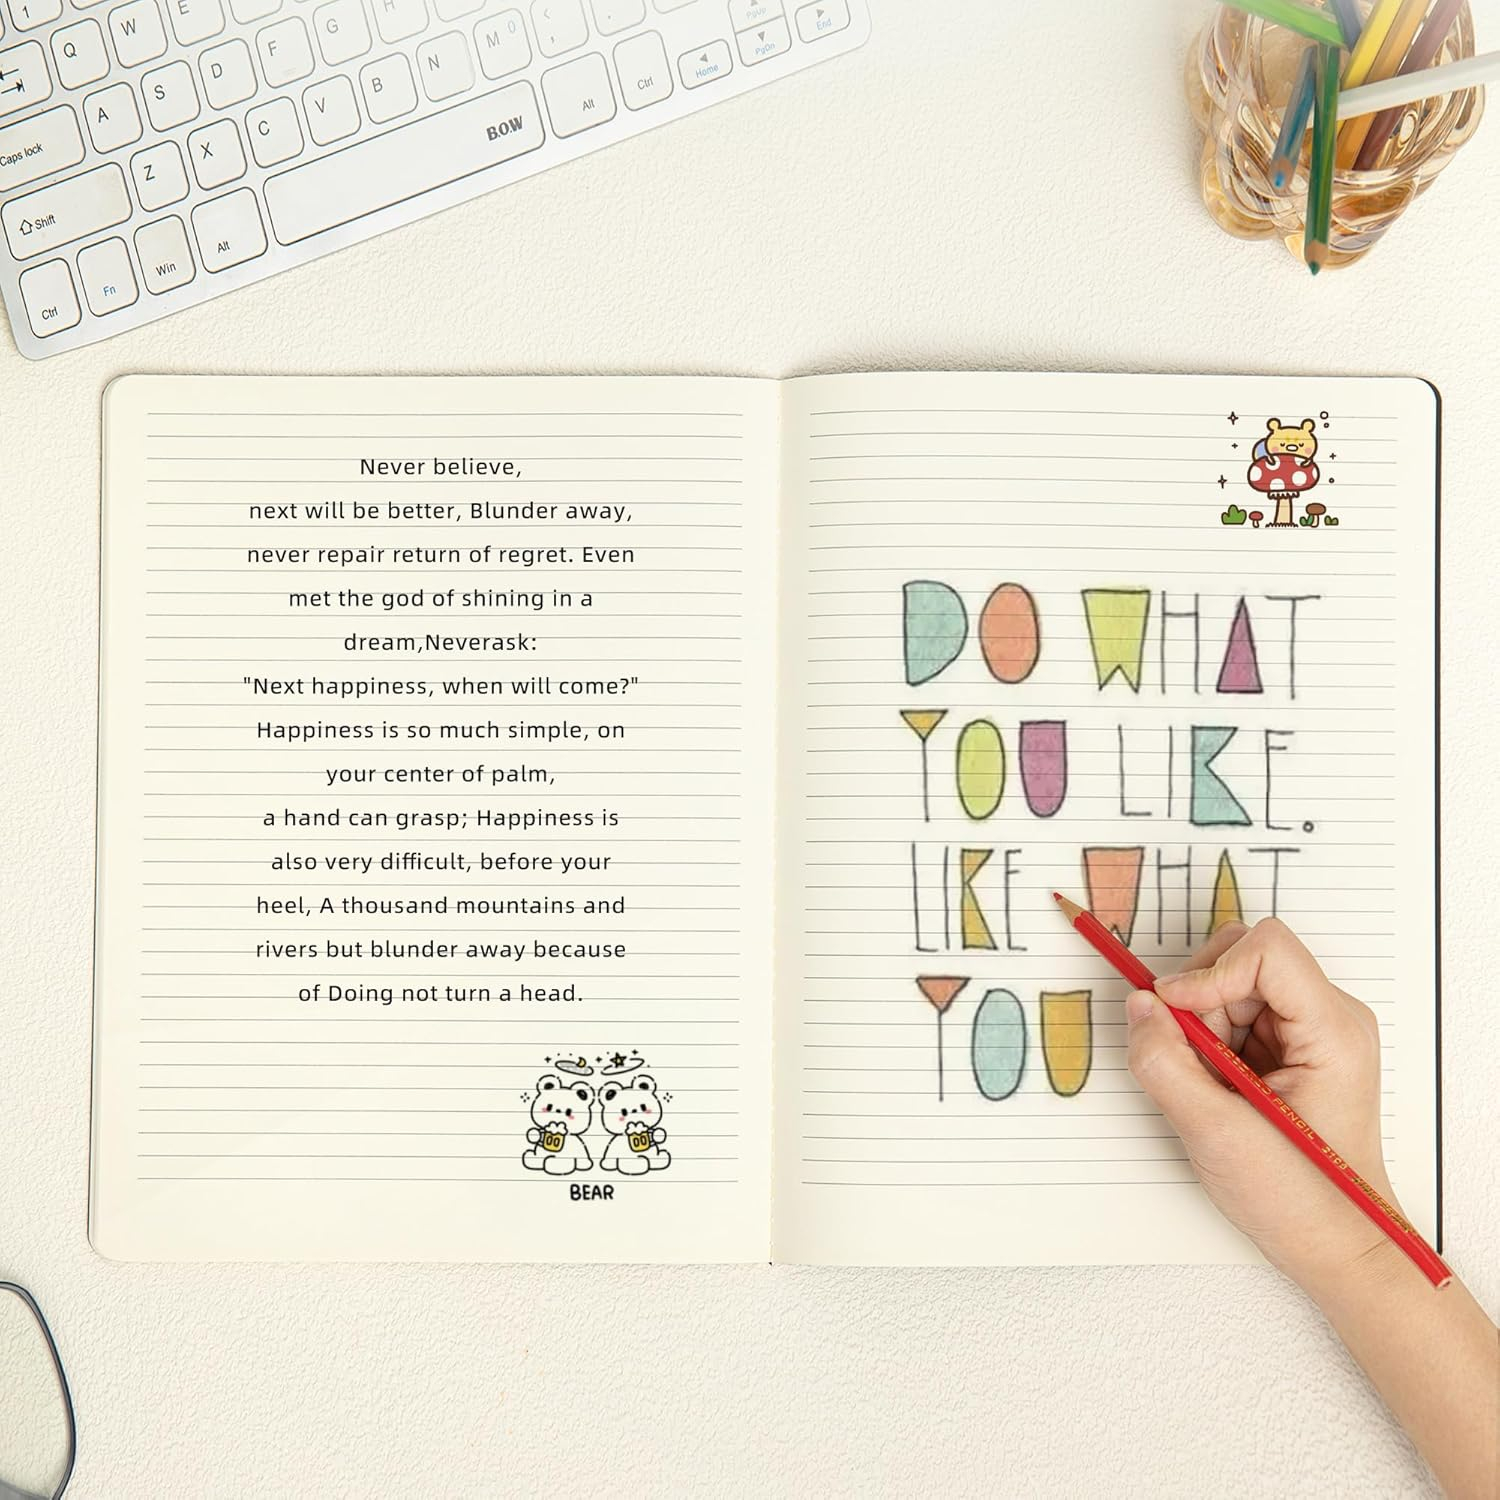 1
Q
W
E
A
S
D
F
G
H
Caps lock
Z
X
C
V
B
N
M 0
< ,
.
Shift
B.O.W
Alt
Ctrl
Home
PgUp
PgDn
End
Ctrl
Fn
Win
Alt
Never believe,
next will be better, Blunder away,
never repair return of regret. Even
met the god of shining in a
dream,Neverask:
"Next happiness, when will come?"
Happiness is so much simple, on
your center of palm,
a hand can grasp; Happiness is
also very difficult, before your
heel, A thousand mountains and
rivers but blunder away because
of Doing not turn a head.
BEAR
DO WHAT
YOU LIKE.
LIKE WHAT
YOU
PENCIL